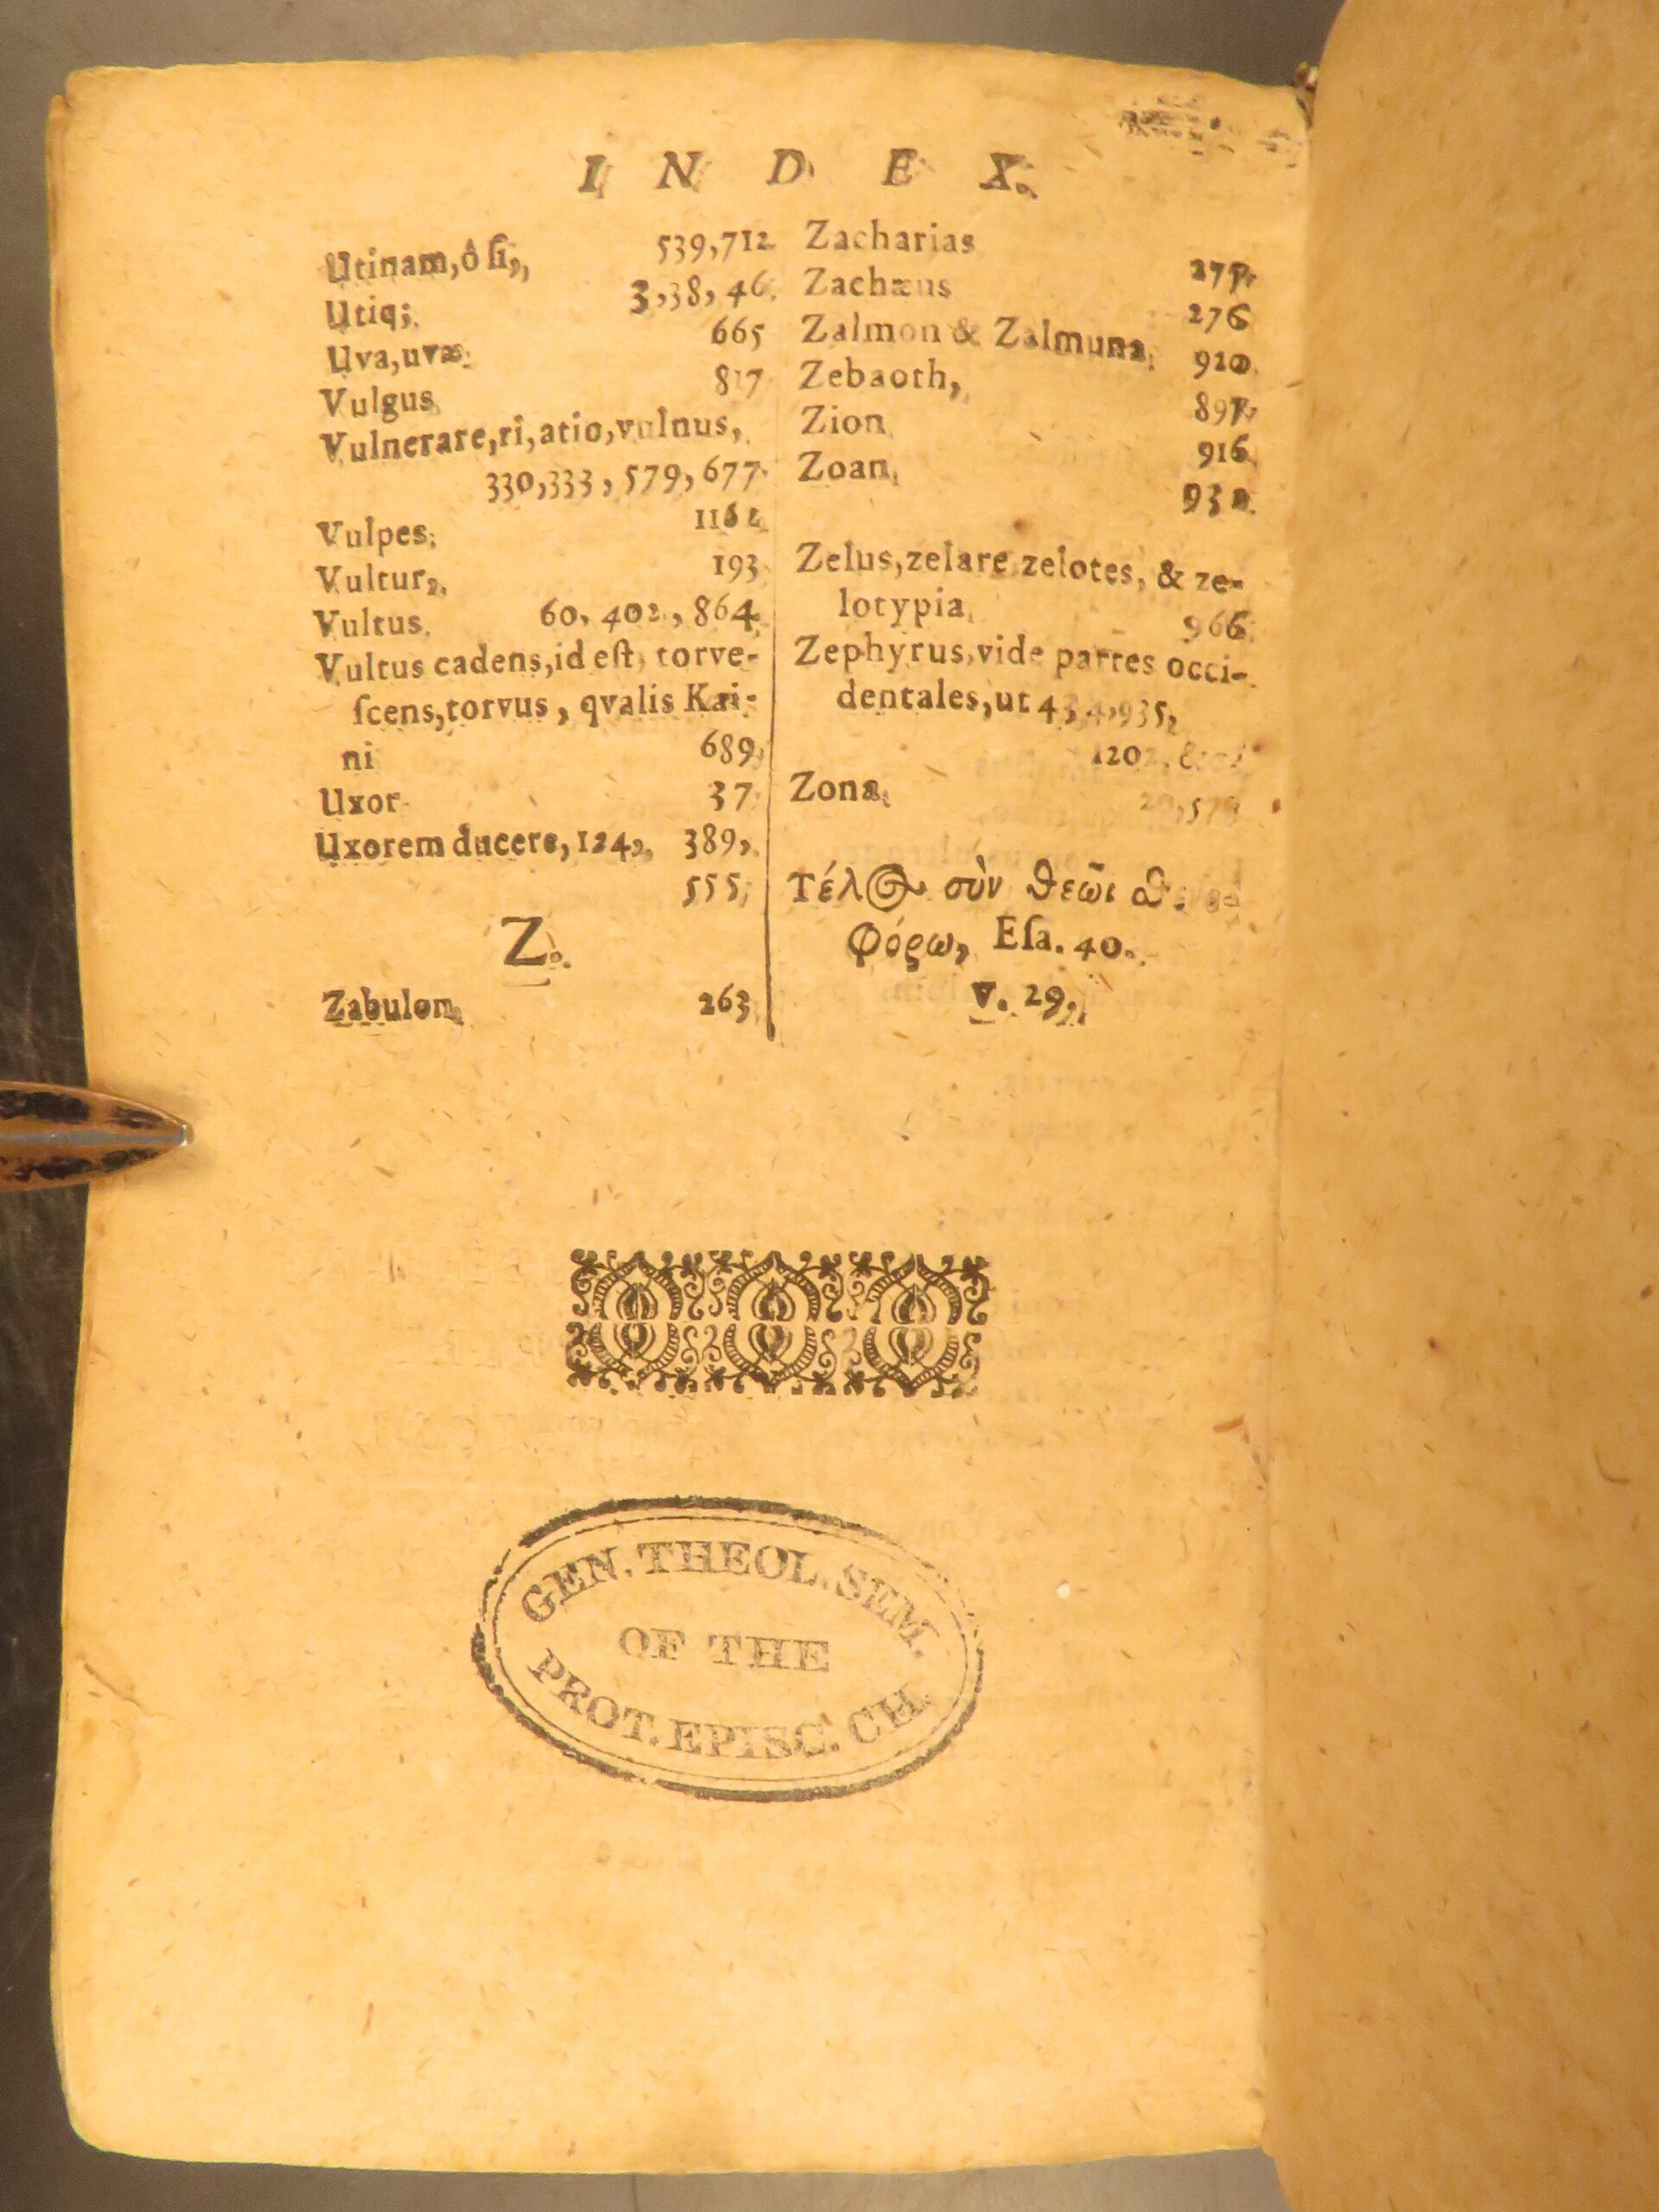 I N D E X.
Utinam, ô ſi, 539, 712
Utiq; 3, 38, 46.
Uva, uvæ 665
Vulgus 817
Vulnerare, ri, atio, vulnus,
330, 333, 579, 677.
Vulpes,
Vultur, 193
Vultus, 60, 402, 864
Vultus cadens, id eſt, torve-
ſcens, torvus, qvalis Kai-
ni 689
Uxor 37
Uxorem ducere, 124, 389,
555,
Z.
Zabulon 263
Zacharias
Zachæus 276
Zalmon & Zalmuna, 920
Zebaoth, 897
Zion 916
Zoan,
Zelus, zelare zelotes, & ze-
lotypia, 966
Zephyrus, vide partes occi-
dentales, ut 434, 935,
Zona,
Τέλος σὺν θεῶι
φόρω, Eſa. 40.
v. 29.
GEN. THEOL. SEM.
OF THE
PROT. EPISC. CH.